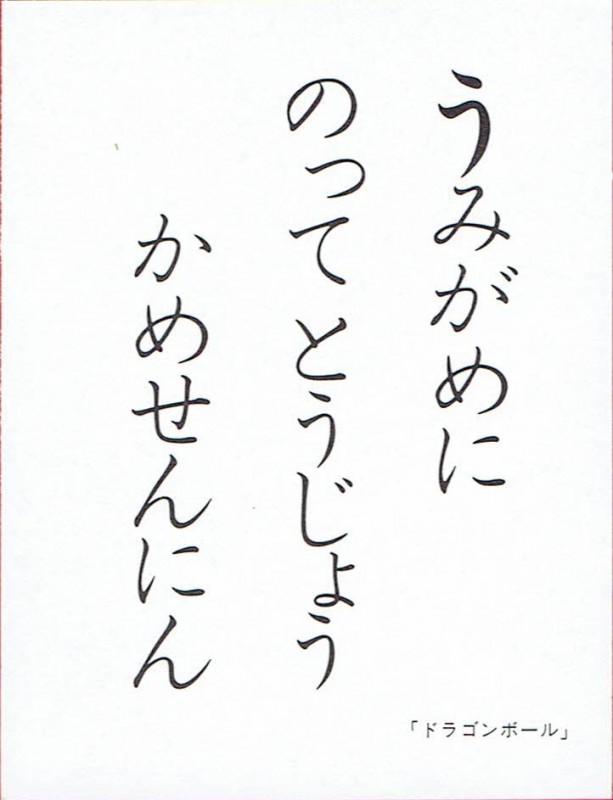 うみがめに
のって とうじょう
かめせんにん
「ドラゴンボール」